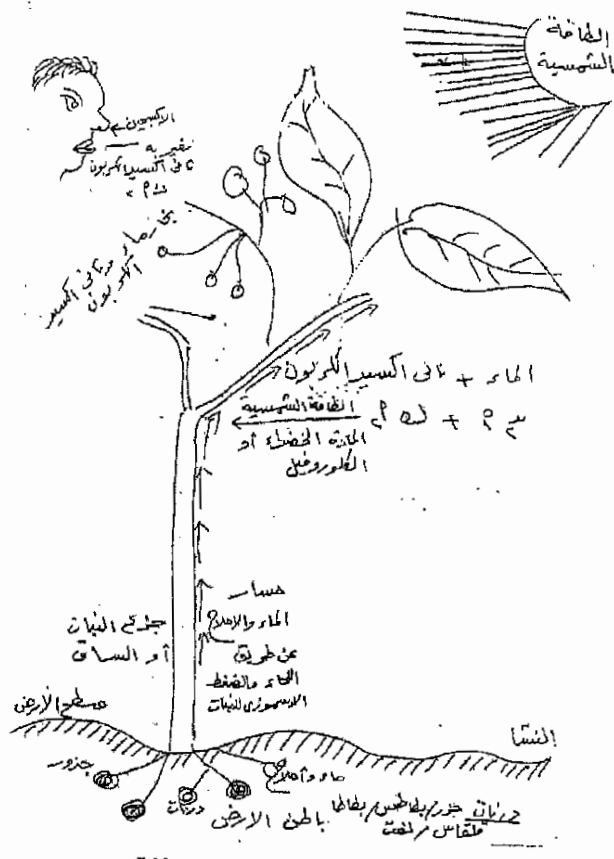 الطاقة
الشمسية
الاكسجين
ثانى اكسيد الكربون
ك أ٢
بخار ماء وثانى اكسيد
الكربون
الماء + ثانى اكسيد الكربون
يد٢ أ + ك أ٢
الطاقة الشمسية
المادة الخضراء أو
الكلوروفيل
مسار
الماء والاملاح
عن طريق
اللحاء والضغط
الاسموزى للنبات
جذع النبات
أو الساق
سطح الأرض
النشا
جذور
ماء وأملاح
درنات
باطن الارض
درنات جزر / بطاطس / بطاطا
قلقاس / لفت